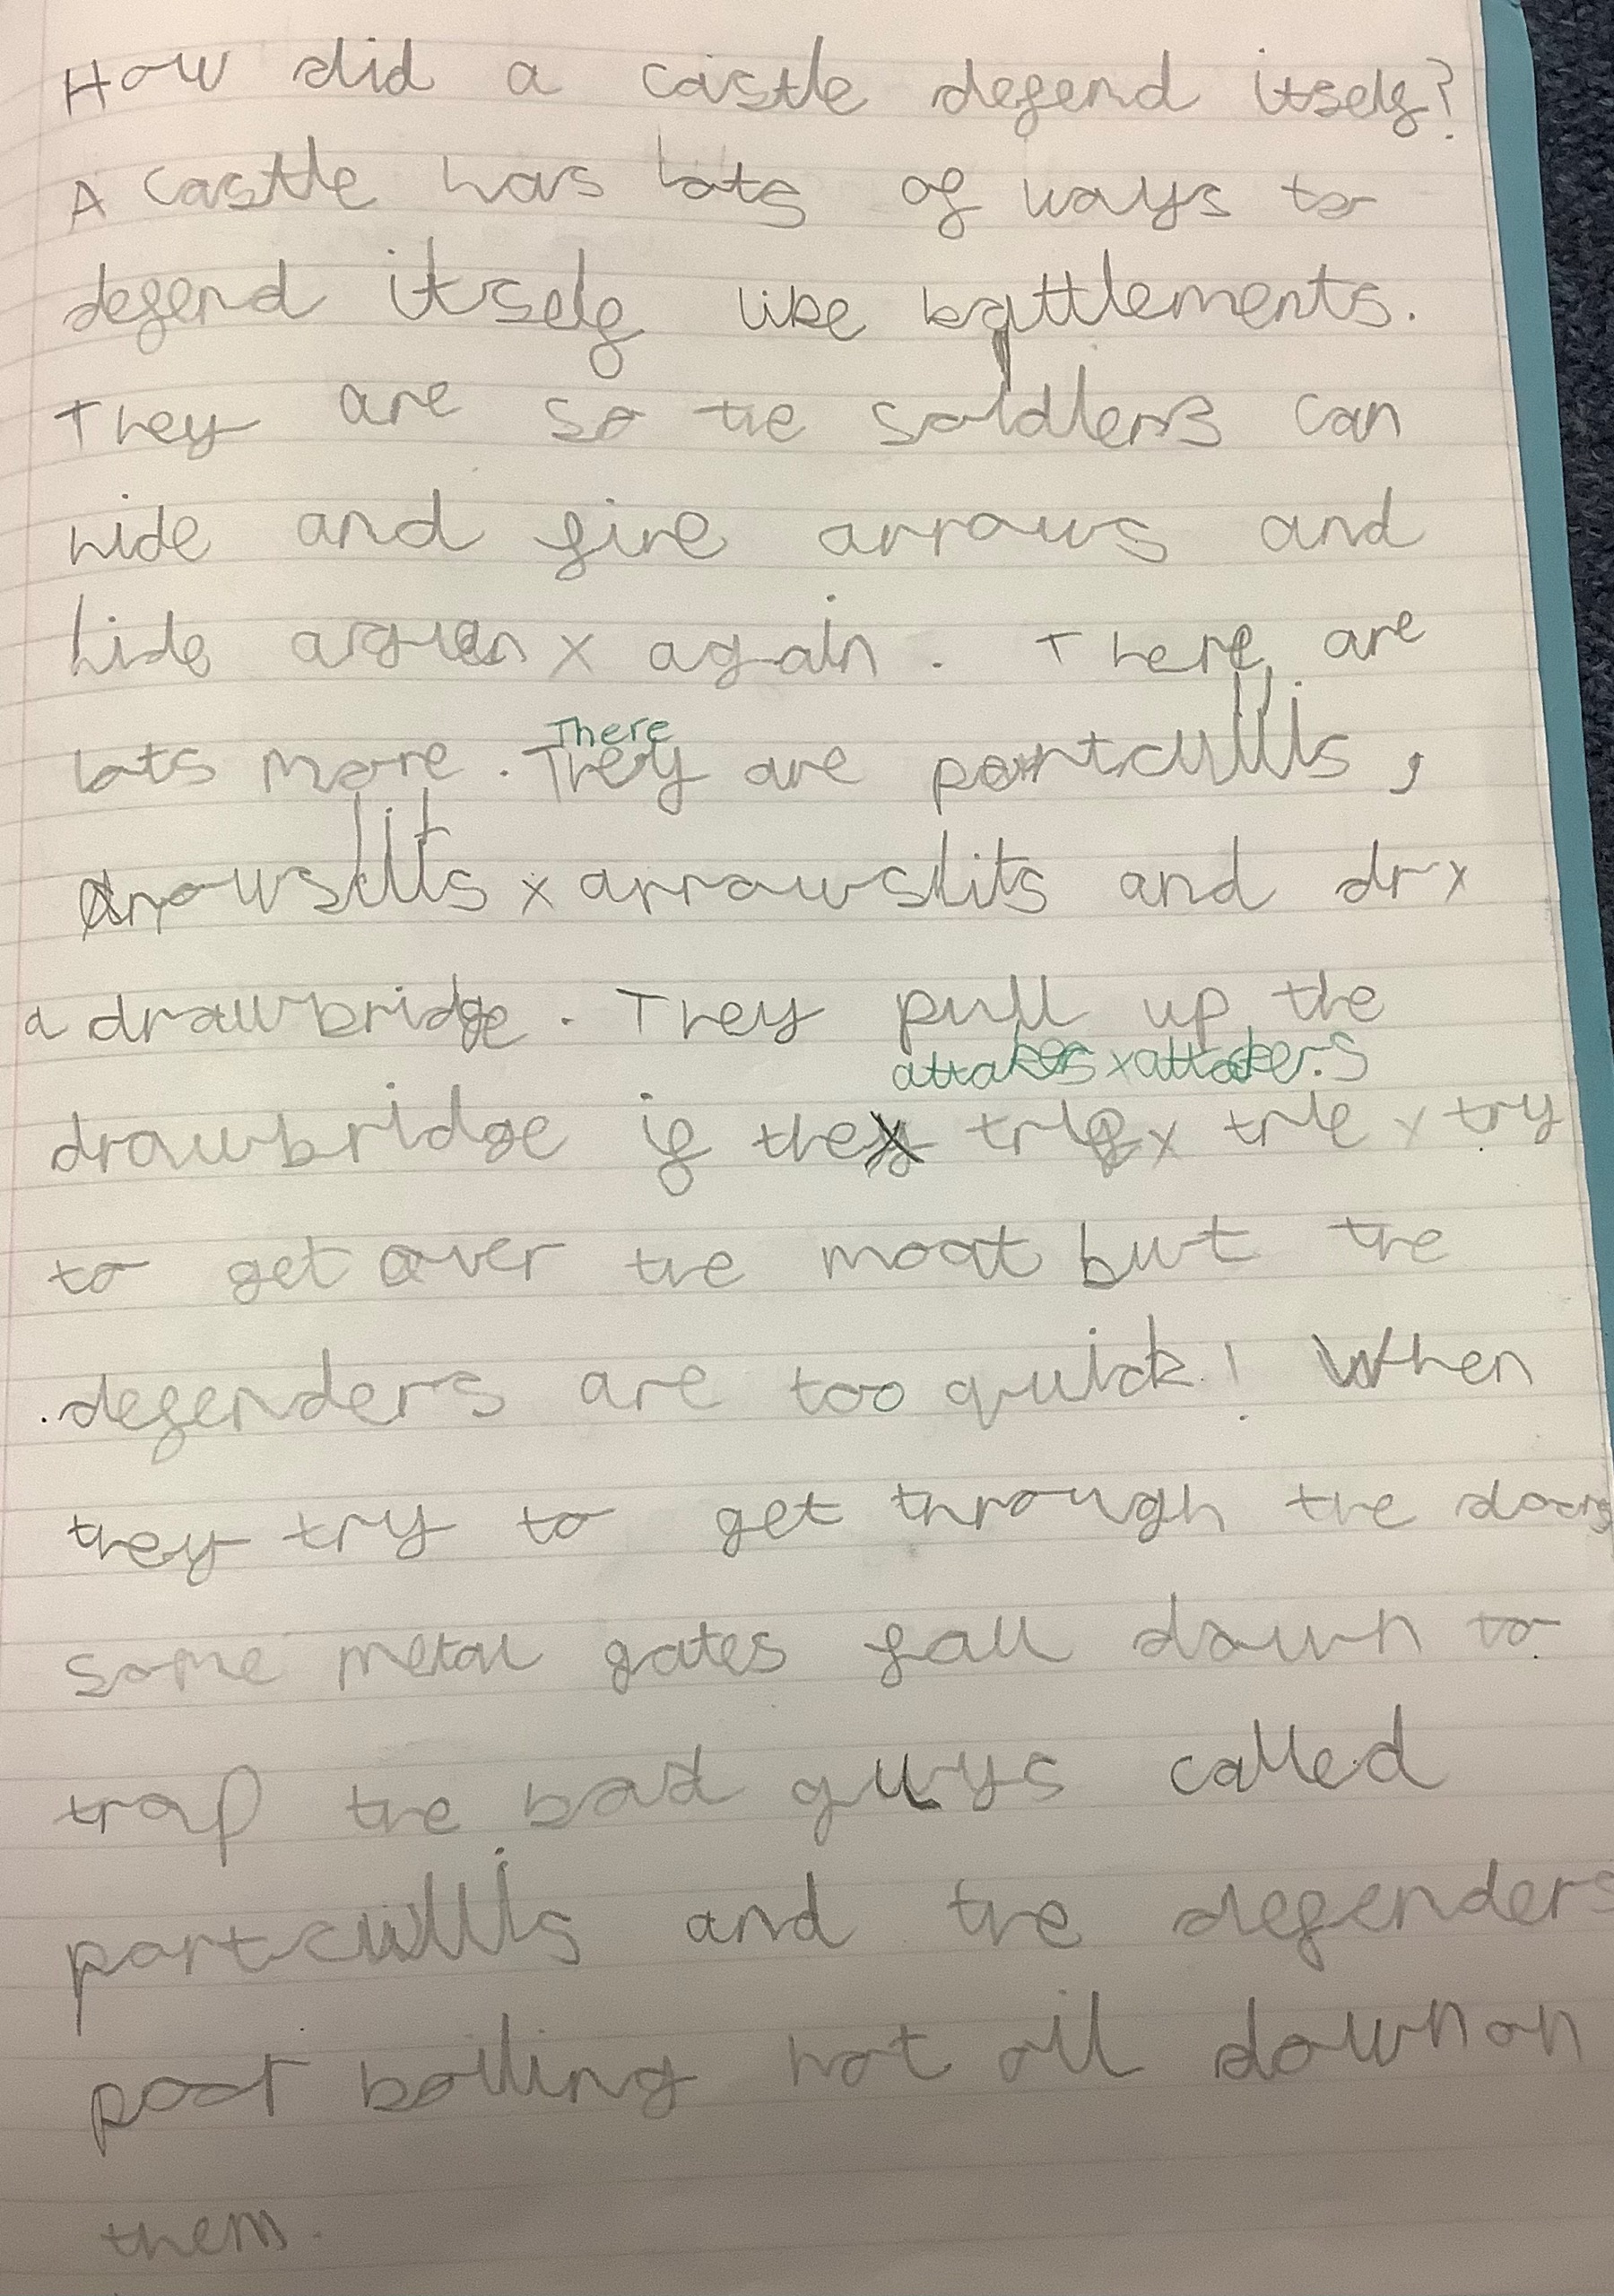 How did a castle defend itself?
A castle has lots of ways to
defend itself like battlements.
They are so the soldiers can
hide and fire arrows and
hide x again. There are
There
lots more. They are portcullis,
arowslits x arrowslits and dr x
a drawbridge. They pull up the
attakers x attackers
drawbridge if they x trie x try
to get over the moat but the
defenders are too quick! When
they try to get through the doors
some metal gates fall down to
trap the bad guys called
portcullis and the defenders
poor boiling hot oil down on
them.